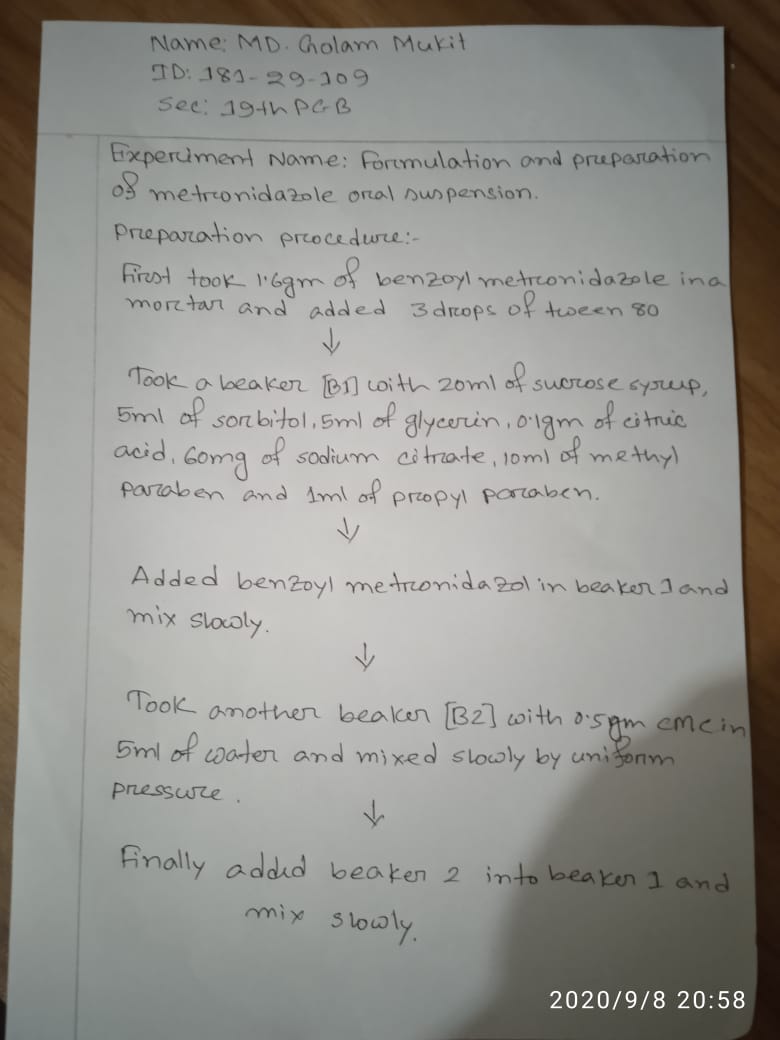 Name: MD. Golam Mukit
ID: 181-29-109
Sec: 19th PGB
Experiment Name: Formulation and preparation
of metronidazole oral suspension.
Preparation procedure:-
First took 1.6gm of benzoyl metronidazole in a
mortar and added 3 drops of tween 80
↓
Took a beaker [B1] with 20ml of sucrose syrup,
5ml of sorbitol, 5ml of glycerin, 0.1gm of citric
acid, 60mg of sodium citrate, 10ml of methyl
paraben and 1ml of propyl paraben.
↓
Added benzoyl metronidazol in beaker 1 and
mix slowly.
↓
Took another beaker [B2] with 0.5gm CMC in
5ml of water and mixed slowly by uniform
pressure.
↓
Finally added beaker 2 into beaker 1 and
mix slowly.
2020/9/8 20:58